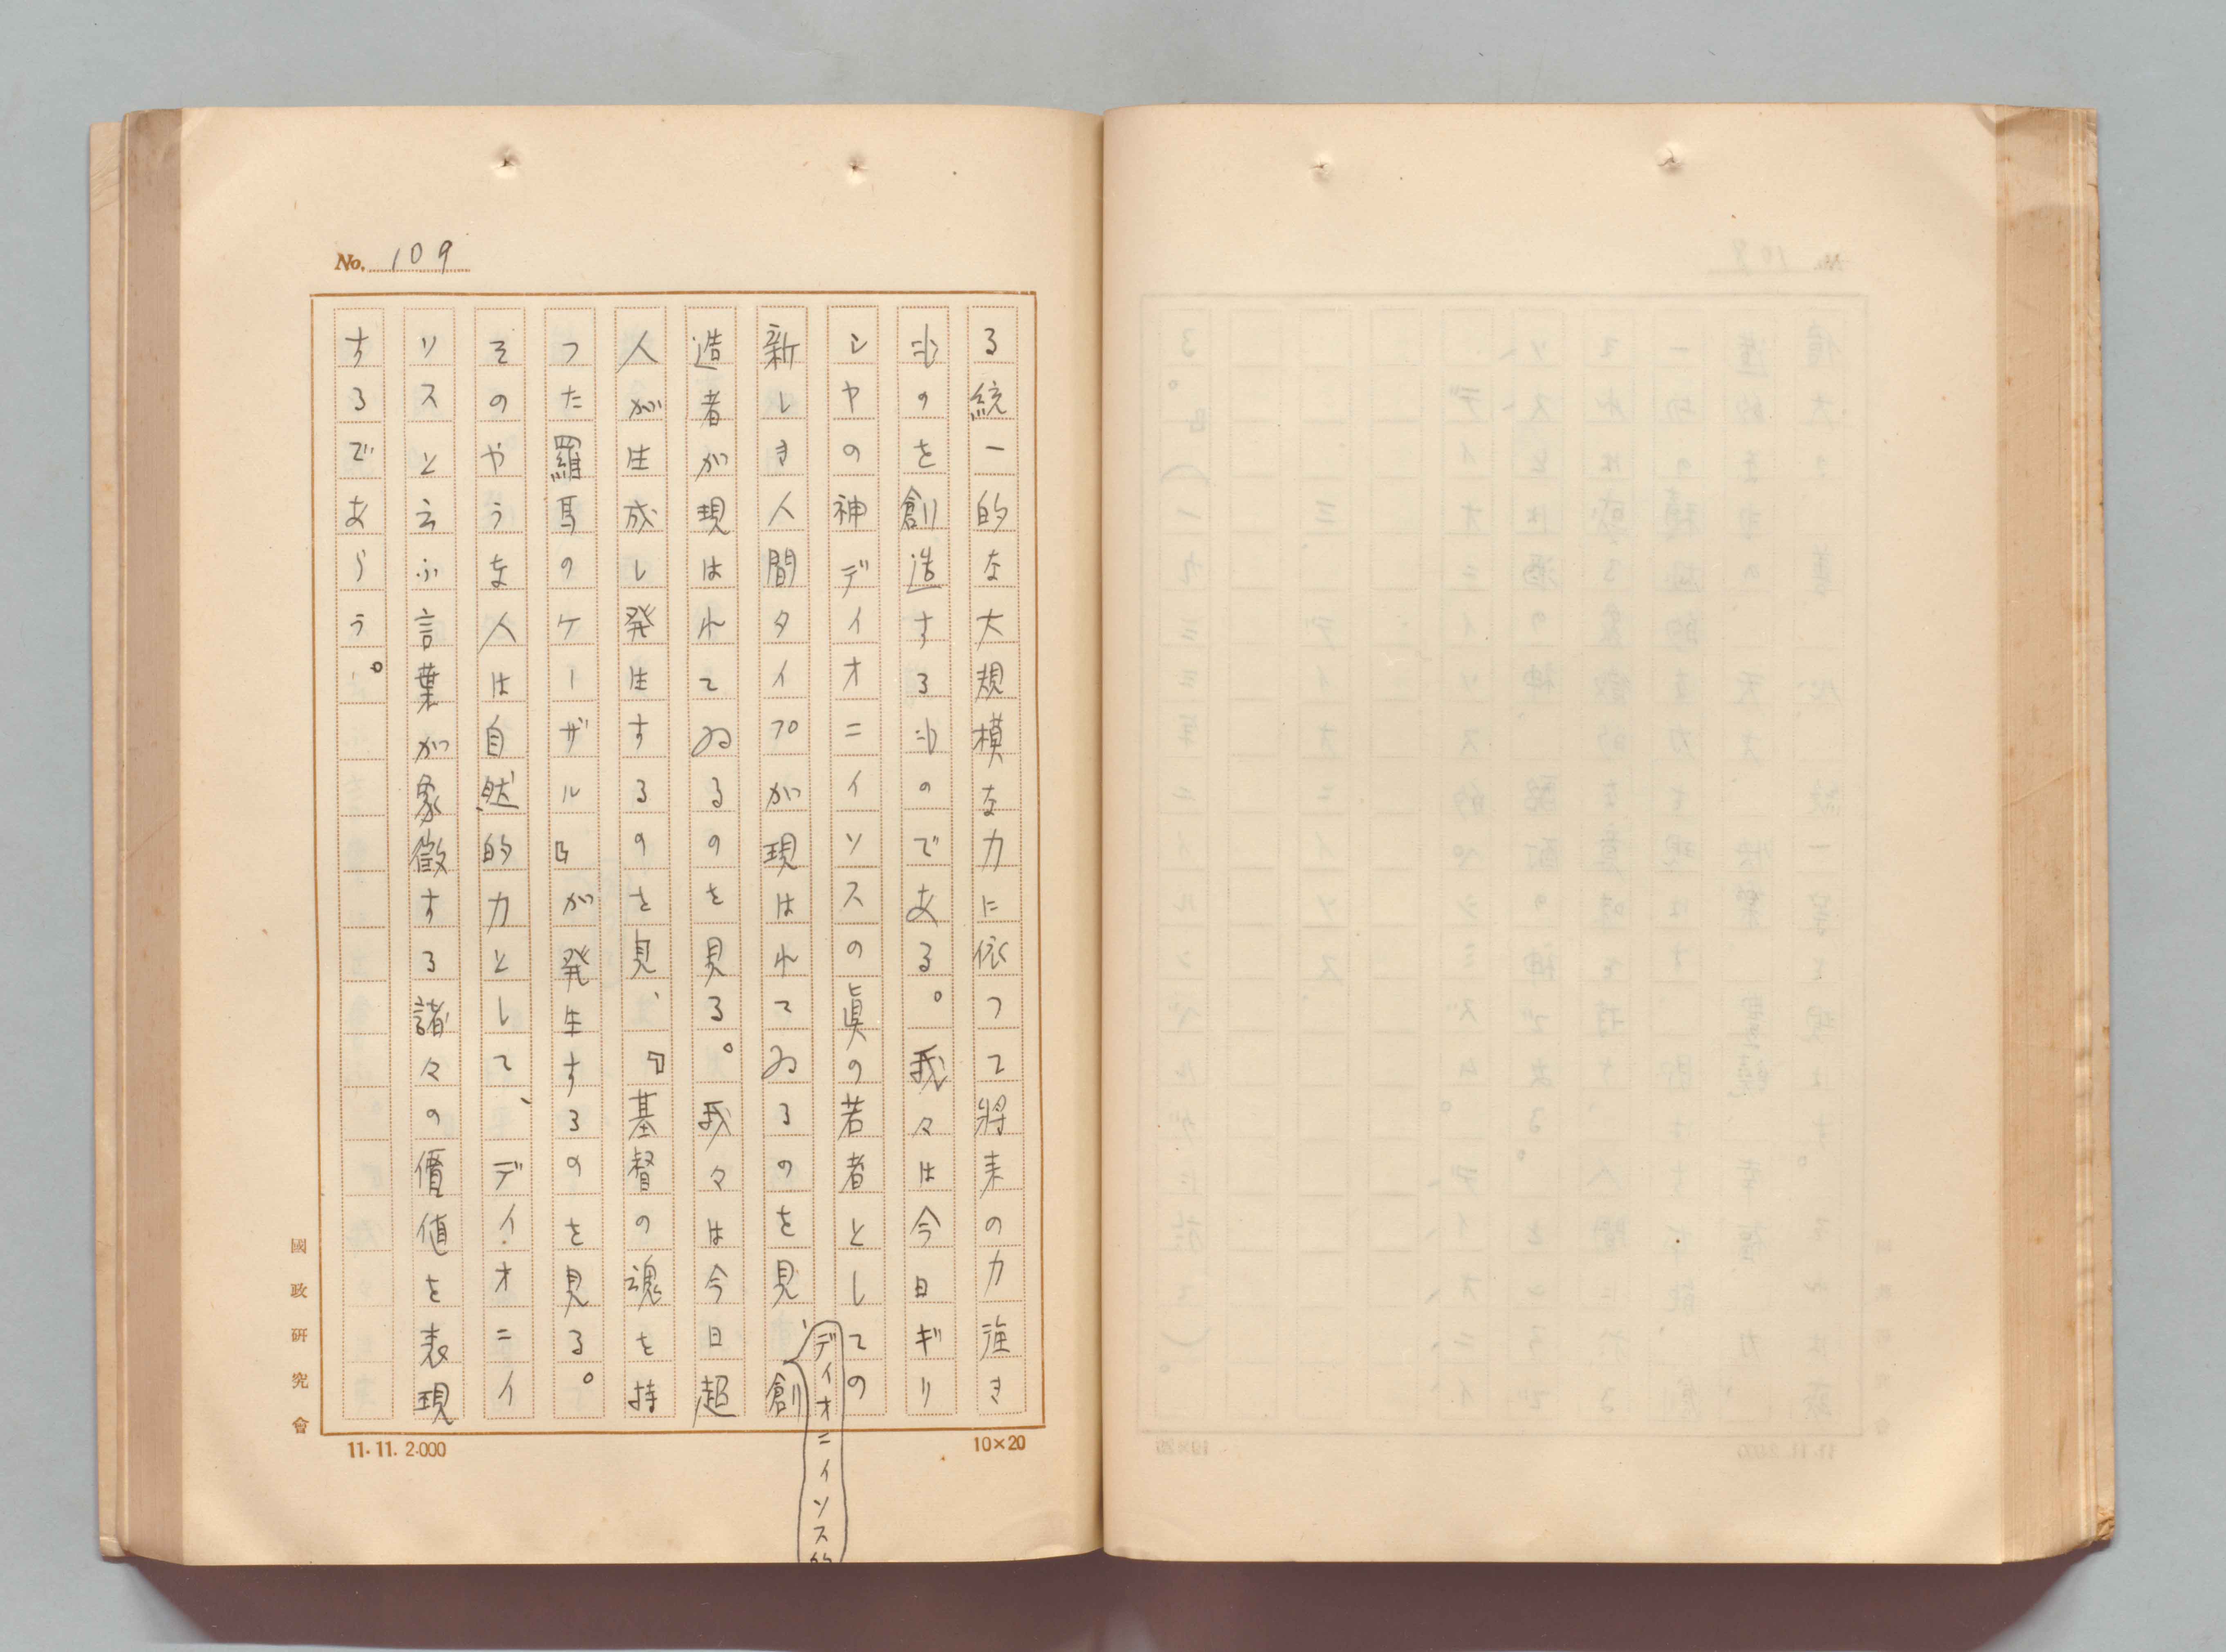 No. 109
る統一的な大規模な力に依つて將来の力強き
ものを創造するものである。我々は今日ギリ
シヤの神デイオニイソスの眞の若者としての
新しき人間タイプが現はれてゐるのを見、創
デイオニイソス的
造者が現はれてゐるのを見る。我々は今日超
人が生成し発生するのを見、『基督の魂を持
つた羅馬のケーザル』が発生するのを見る。
そのやうな人は自然的力として、デイオニイ
ソスと云ふ言葉が象徴する諸々の價値を表現
するであらう。
國政研究會
10×20
11.11.2.000